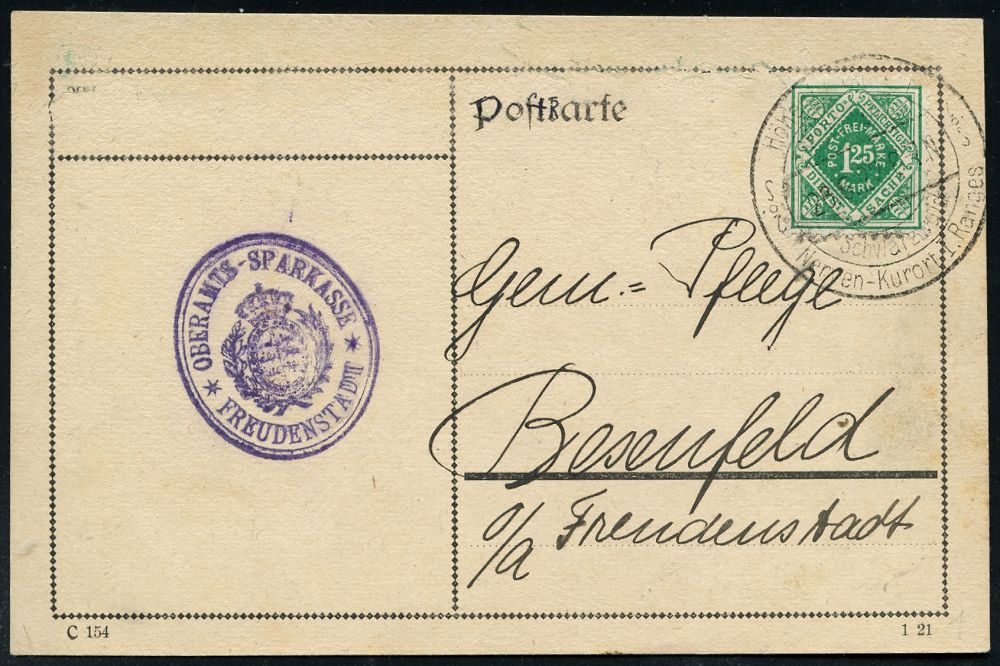 Postkarte
PORTO-
PFLICHTIGE
DIENST
SACHE
POST-FREI-MARKE
1 25
MARK
Schwarzwald
Nerven-Kurort I. Ranges
OBERAMTS-SPARKASSE
* FREUDENSTADT *
Gem.= Pflege
Besenfeld
o/a Freudenstadt
C 154
1 21